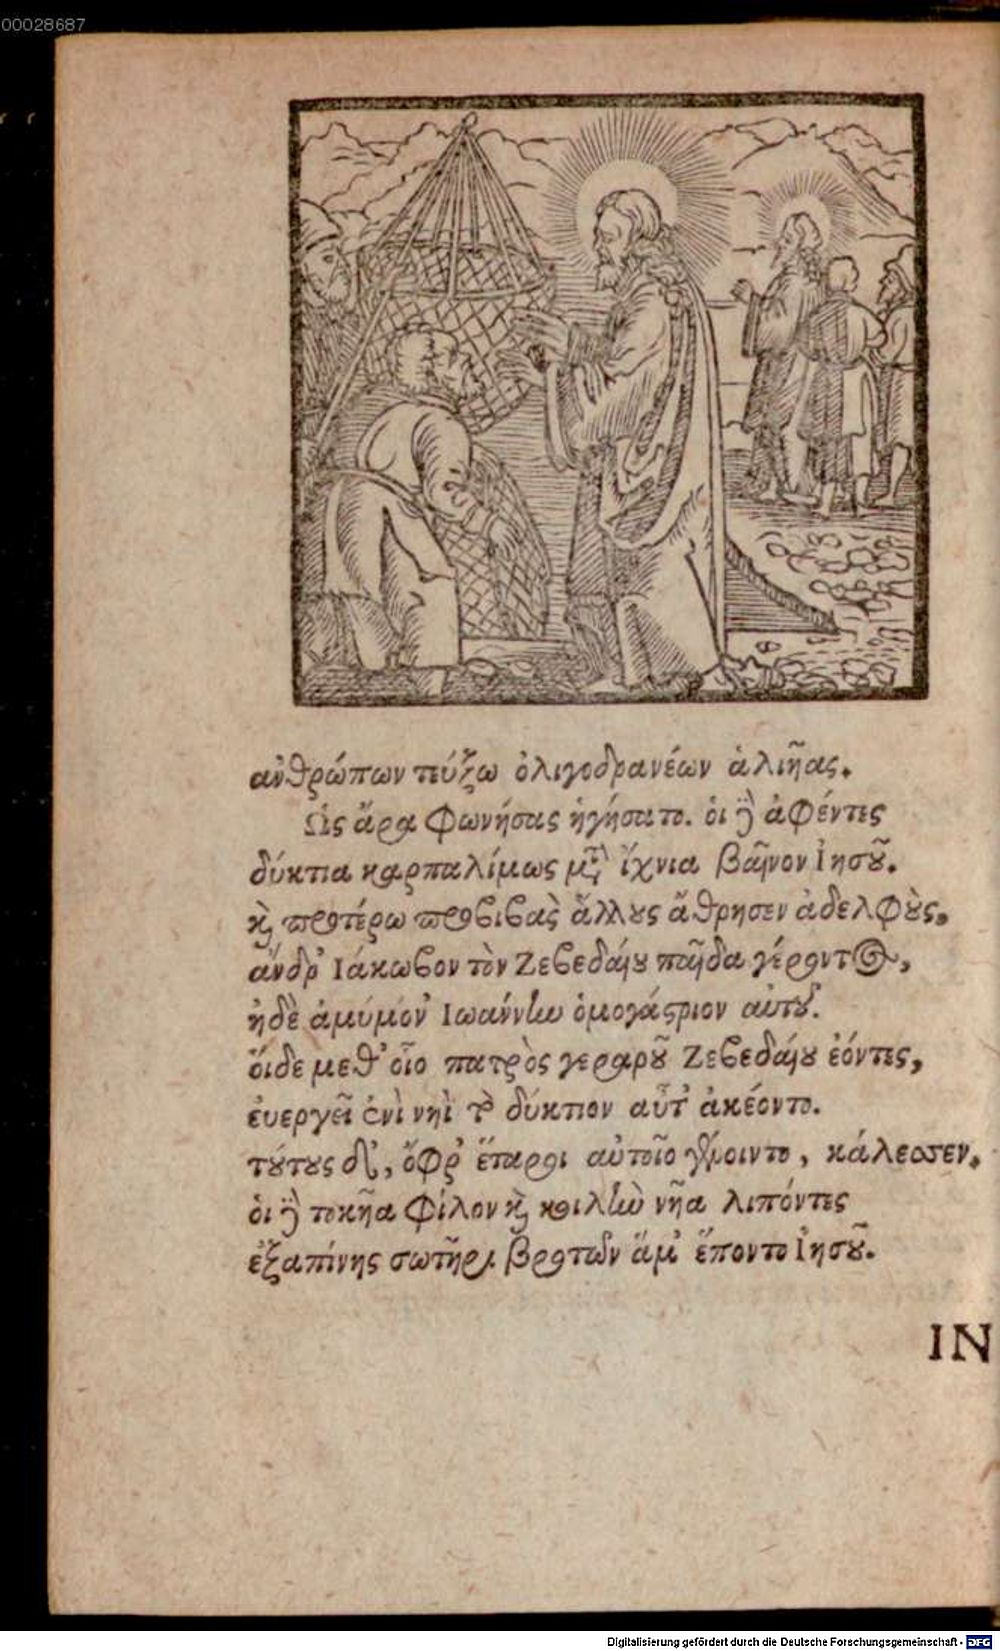 00028687
ἀνθρώπων τεύξω ὀλιγοδρανέων ἁλιῆας.
Ὣς ἄρα φωνήσας ἡγήσατο. οἱ δ᾽ ἀφέντες
δύκτια καρπαλίμως μετ᾽ ἴχνια βαῖνον Ἰησοῦ.
καὶ προτέρω προβιβὰς ἄλλους ἄθρησεν ἀδελφοὺς,
ἄνδρ᾽ Ἰάκωβον τὸν Ζεβεδαίου παῖδα γέροντος,
ἠδὲ ἀμύμον᾽ Ἰωάννην ὁμογάστριον αὐτοῦ.
οἵδε μεθ᾽ οἷο πατρὸς γεραροῦ Ζεβεδαίου ἐόντες,
ἐυεργεῖ ἐνὶ νηῒ τὸ δύκτιον αὖτ᾽ ἀκέοντο.
τούτους δ᾽, ὄφρ᾽ ἕταροι αὐτοῖο γένοιντο, κάλεσσεν.
οἱ δ᾽ τοκῆα φίλον καὶ κοιλὴν νῆα λιπόντες
ἐξαπίνης σωτῆρι βροτῶν ἅμ᾽ ἕποντο Ἰησοῦ.
IN
Digitalisierung gefördert durch die Deutsche Forschungsgemeinschaft - DFG